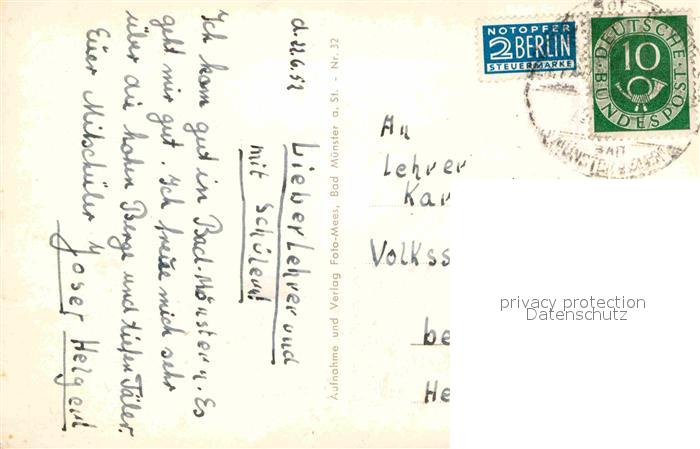 d. 22.6.52
Lieber Lehrer und
mit Schülern!
Ich kam gut in Bad-Münster n. Es
geht mir gut. Ich freue mich sehr
über die hohen Berge und tiefen Täler.
Euer Mitschüler
Josef Helgert
Aufnahme und Verlag Foto-Mees, Bad Münster a. St. - Nr. 32
NOTOPFER
2 BERLIN
STEUERMARKE
DEUTSCHE
10
BUNDESPOST
BAD
MÜNSTER
An
Lehrer
Kar
Volkss
be
He
privacy protection
Datenschutz